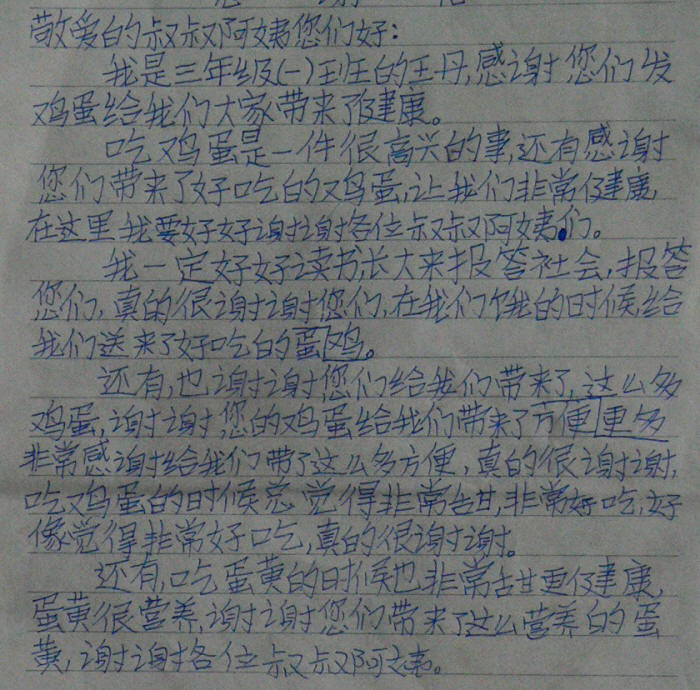 敬爱的叔叔阿姨您们好:
我是三年级(一)班的王丹,感谢您们发
鸡蛋给我们大家带来了健康。
吃鸡蛋是一件很高兴的事,还有感谢
您们带来了好吃的鸡蛋,让我们非常健康,
在这里我要好好谢谢各位叔叔阿姨们。
我一定好好读书,长大来报答社会,报答
您们,真的很谢谢您们,在我们饿的时候,给
我们送来了好吃的蛋鸡。
还有,也谢谢您们给我们带来了,这么多
鸡蛋,谢谢您的鸡蛋给我们带来了方便更多
非常感谢给我们带了这么多方便,真的很谢谢,
吃鸡蛋的时候总觉得非常甜,非常好吃,好
像觉得非常好吃,真的很谢谢。
还有,吃蛋黄的时候也非常甜更健康,
蛋黄很营养,谢谢您们带来了这么营养的蛋
黄,谢谢各位叔叔阿姨。